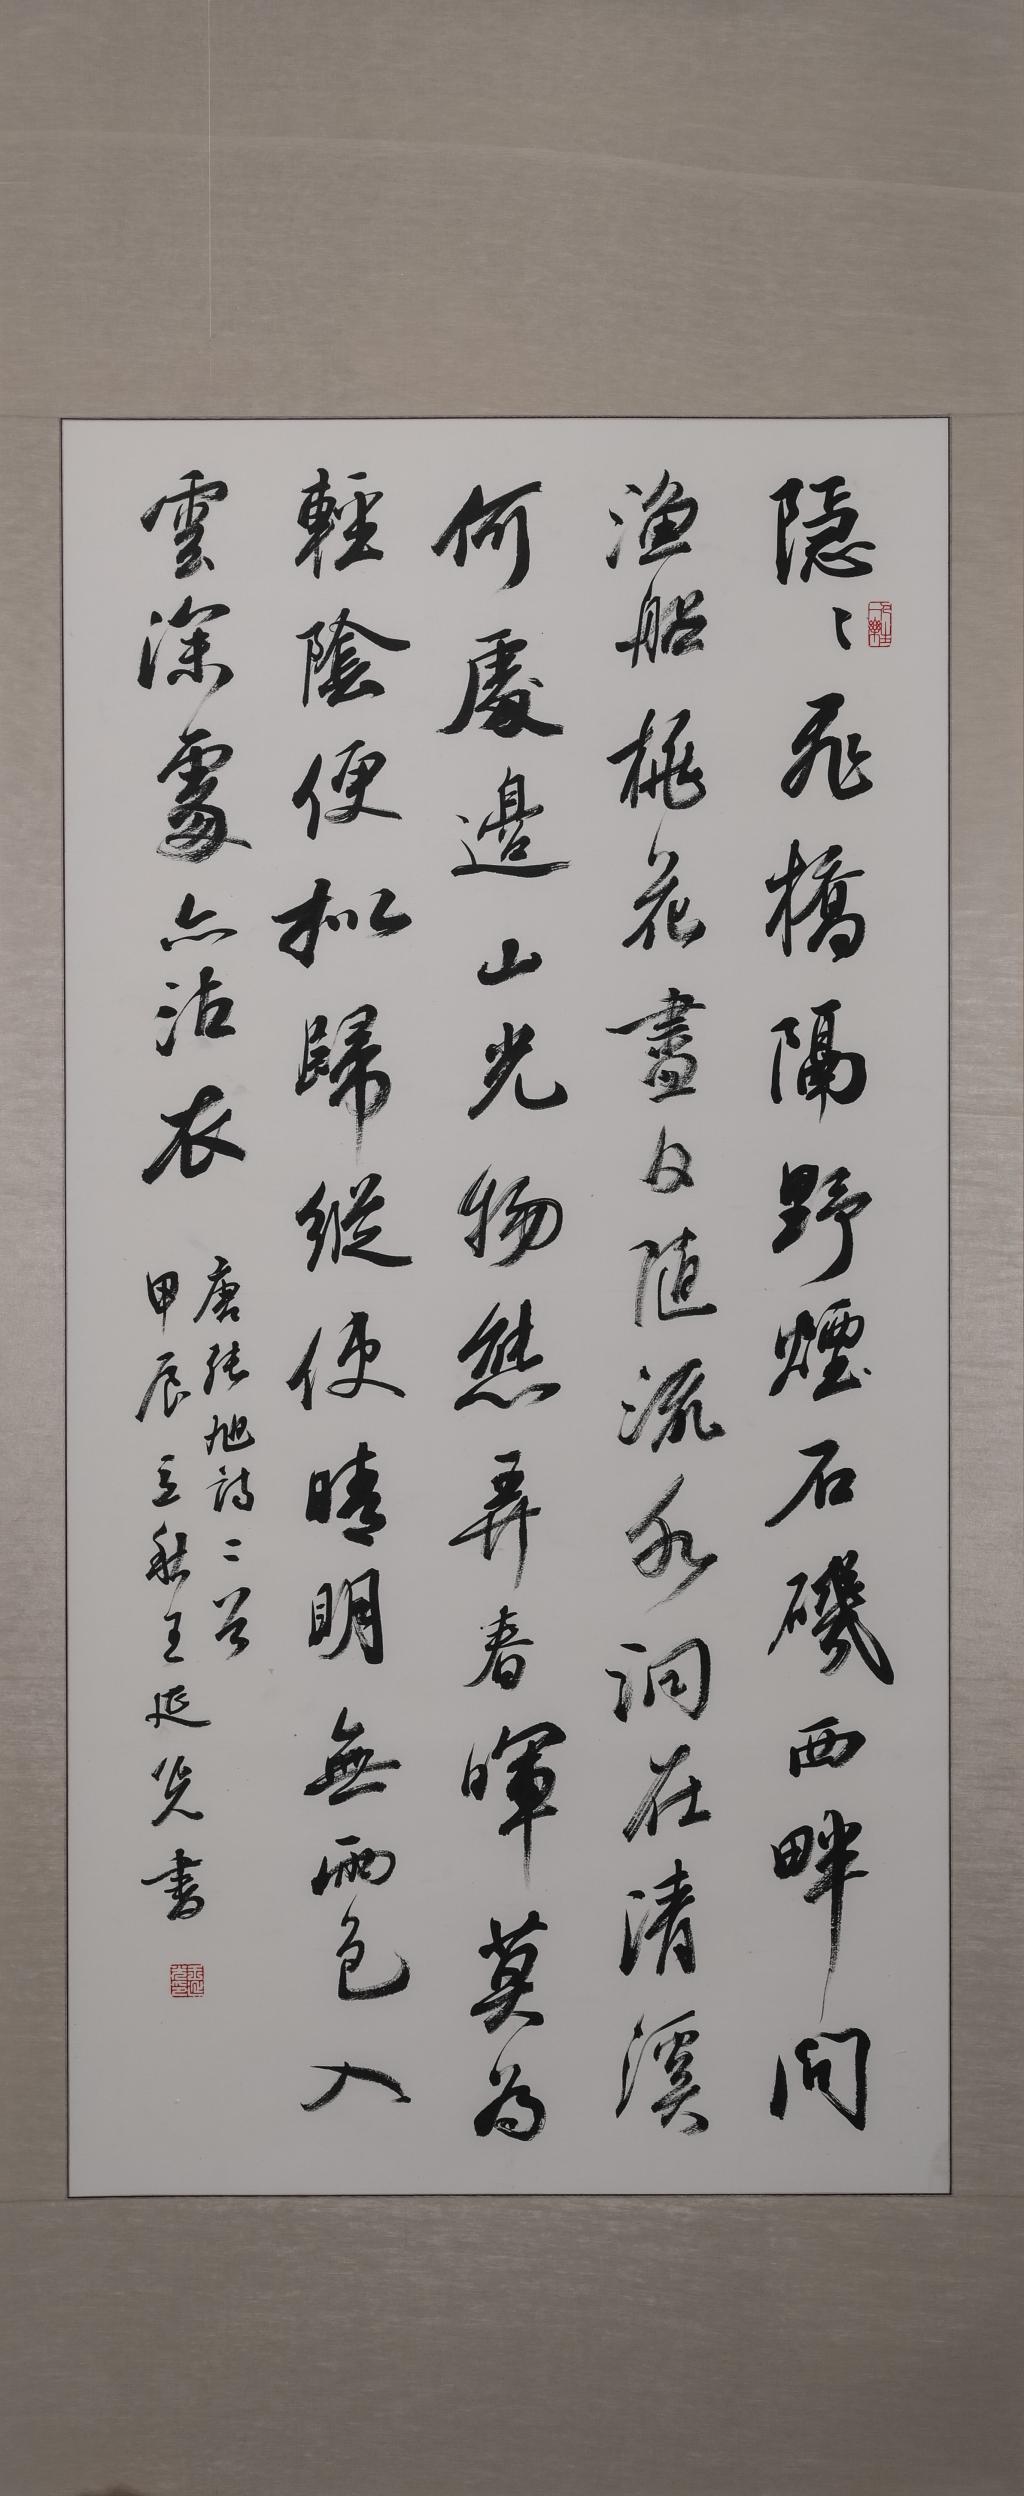 隱〻飛橋隔野煙石磯西畔問
漁船桃花盡日隨流水洞在清溪
何處邊山光物態弄春暉莫為
輕陰便擬歸縱使晴明無雨色入
雲深處亦沾衣
唐張旭詩二首
甲辰立秋王延光書